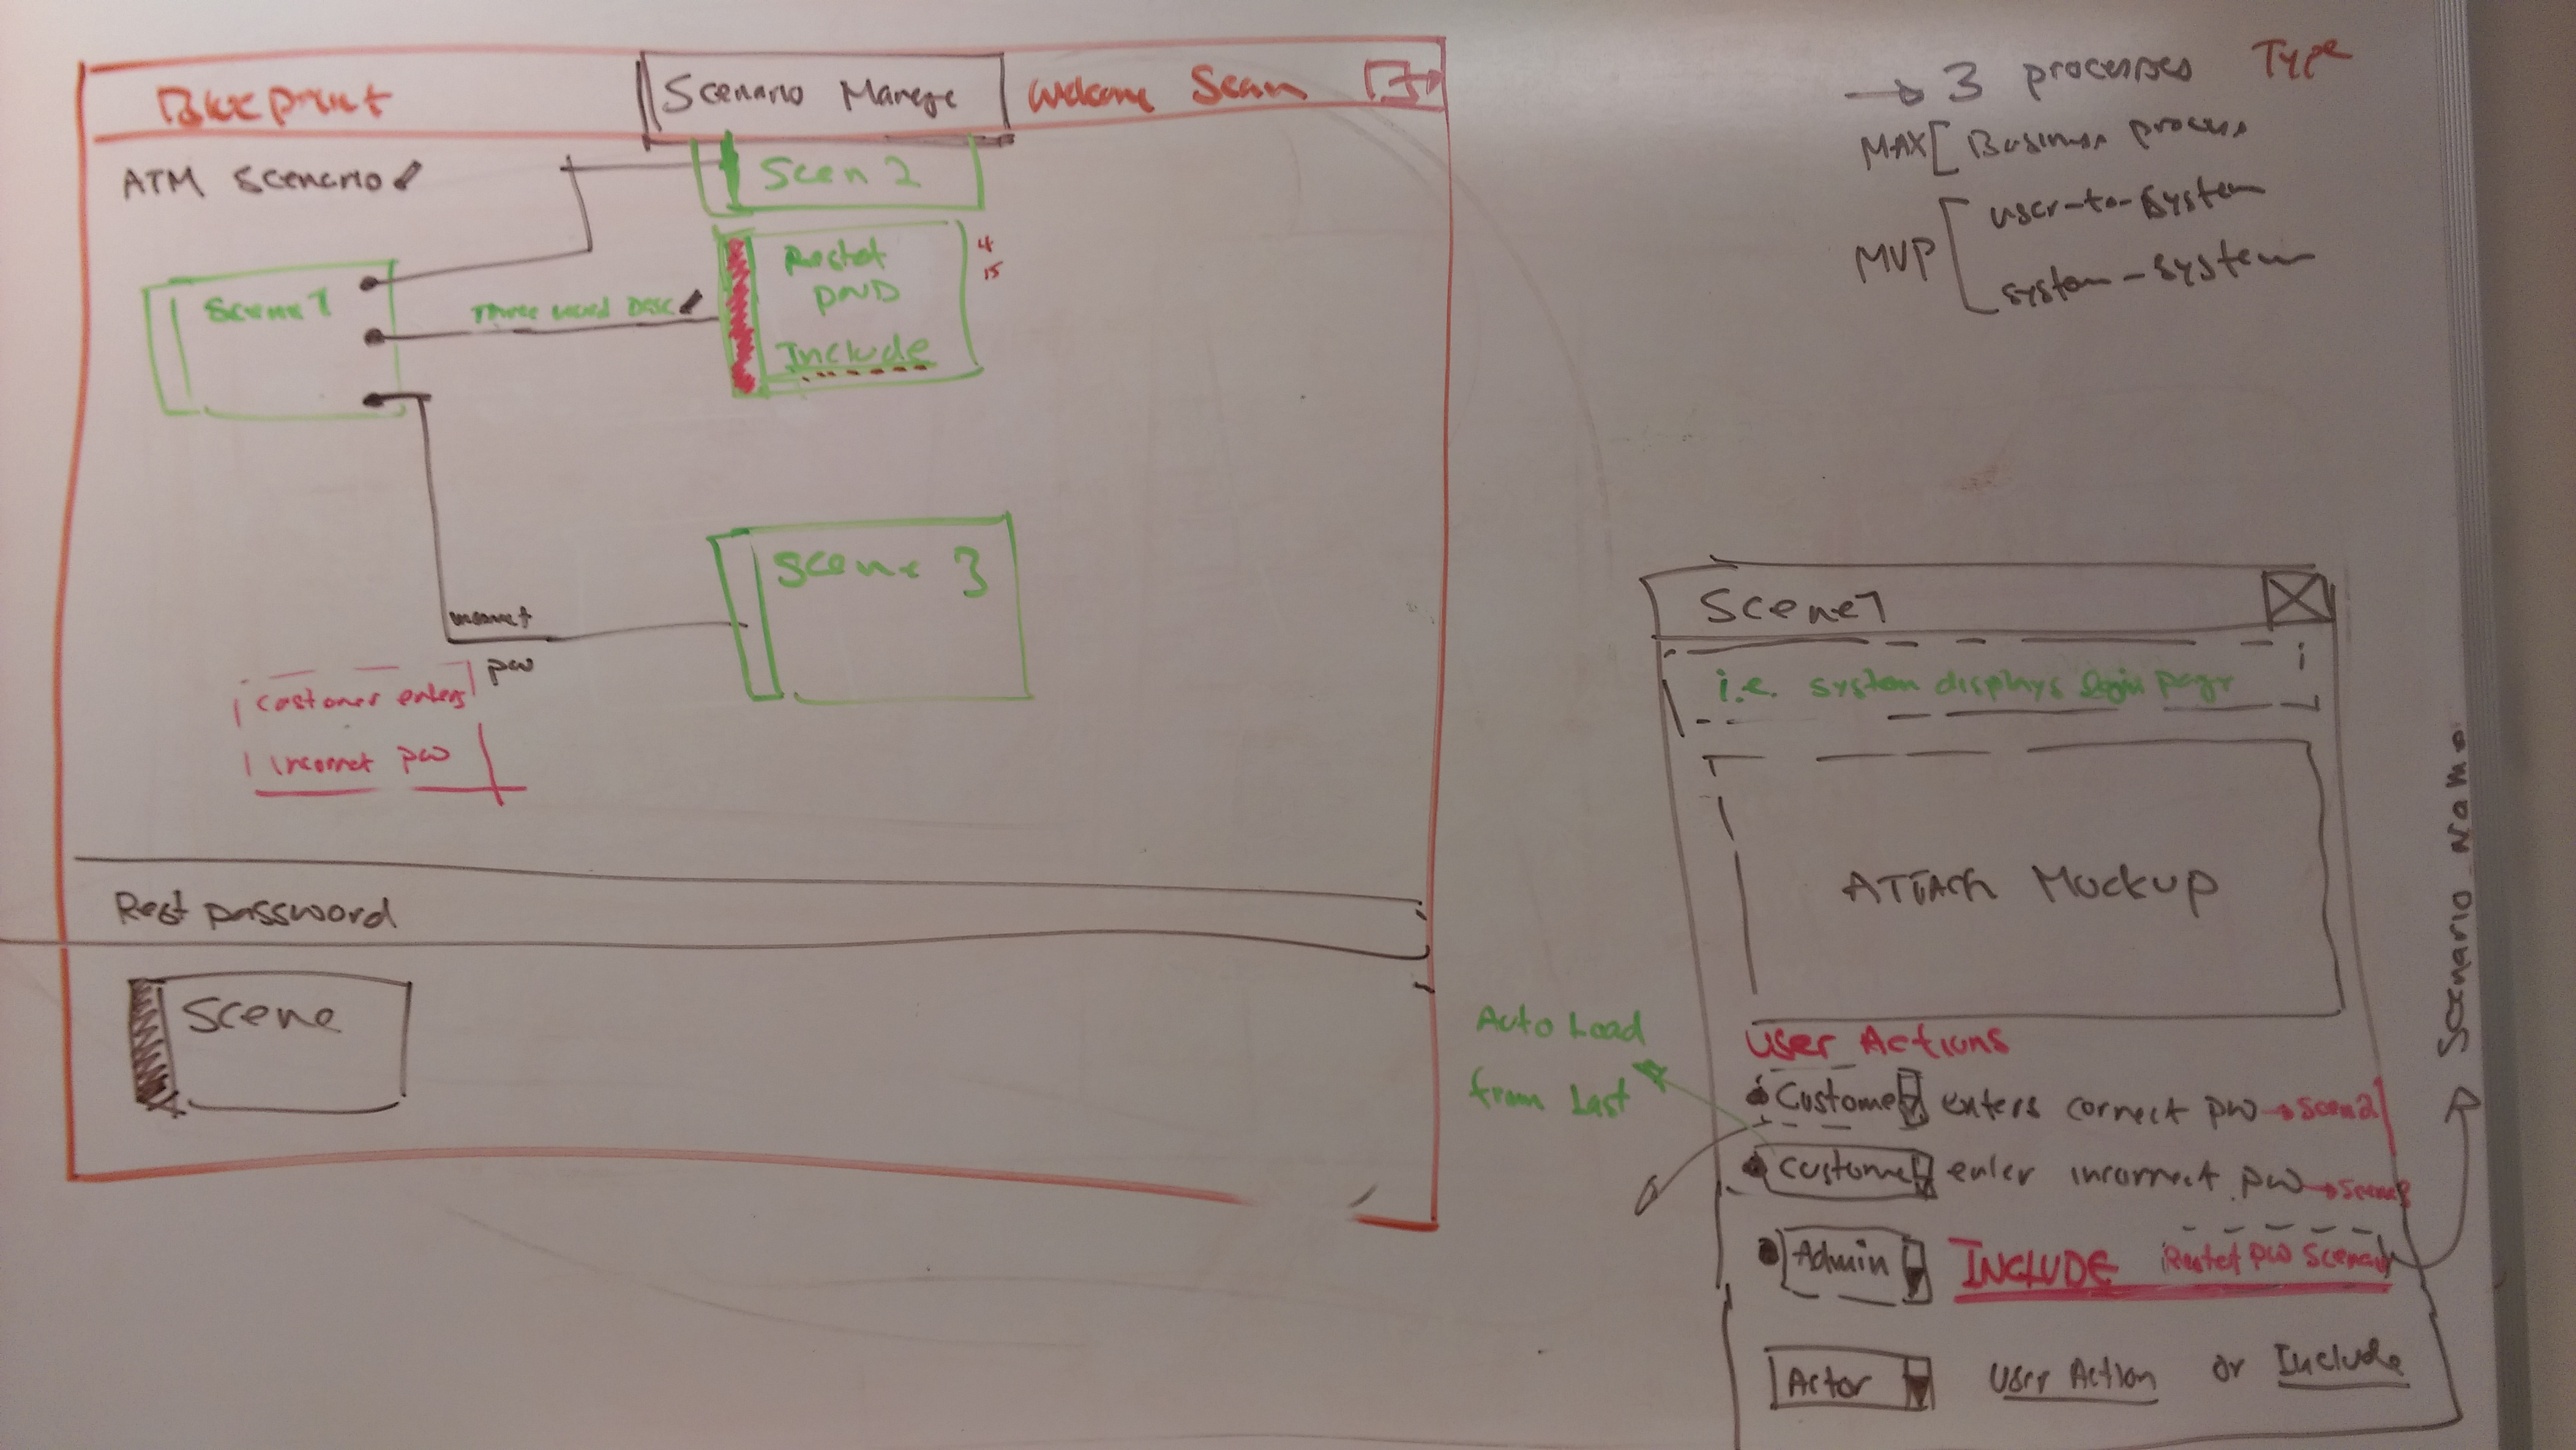 Blueprint
Scenario Manage
Welcome Sean
→ 3 processes Type
MAX [ Business process
MVP [ user-to-system
system-system
ATM Scenario
Scen 2
Scene 1
Three word Desc
Restet
PWD
Include
4
15
Scene 3
incorrect
pw
Customer enters
incorrect pw
Rest password
Scene
Scene 1
i.e. system displays login page
Attach Mockup
User Actions
Customer enters correct pw → Scen 2
Customer enter incorrect pw → Scene 3
Admin INCLUDE Restet pw Scenario
Actor User Action or Include
Auto Load
from Last
Scenario Name